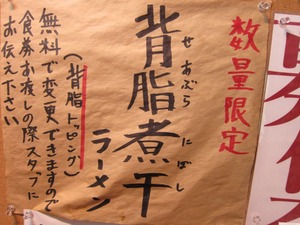 数量限定
背脂煮干
せあぶらにぼし
ラーメン
（背脂トッピング）
無料で変更できますので
食券お渡しの際スタッフに
お伝え下さい